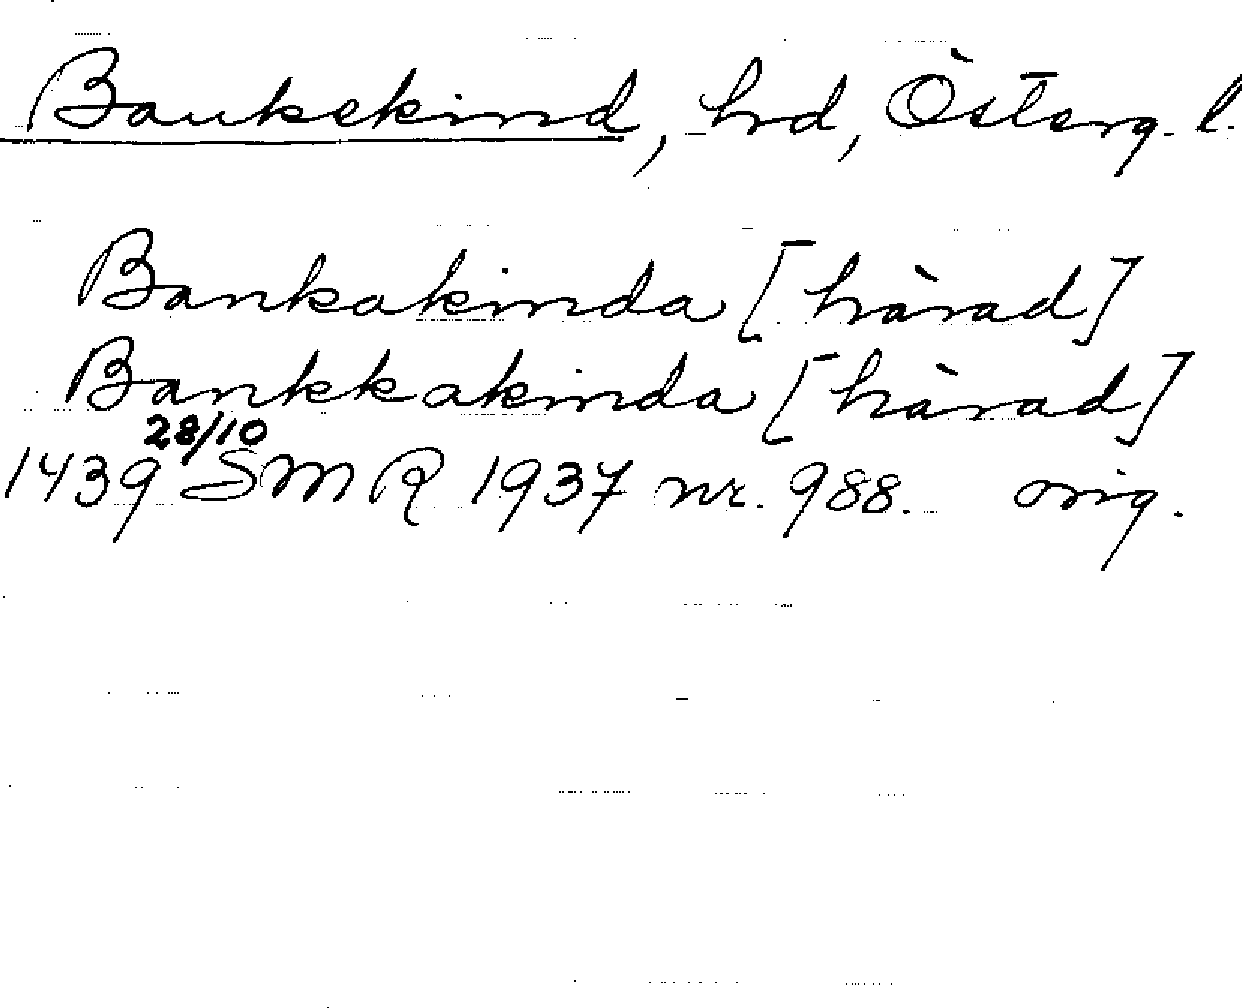 Bankekind, hrd, Österg. l.
Bankakinda [härad]
Bankkakinda [härad]
1439 28/10 SMR 1937 nr. 988. orig.